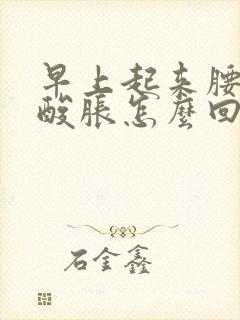 早上起来腰
酸胀怎麼回
石金鑫